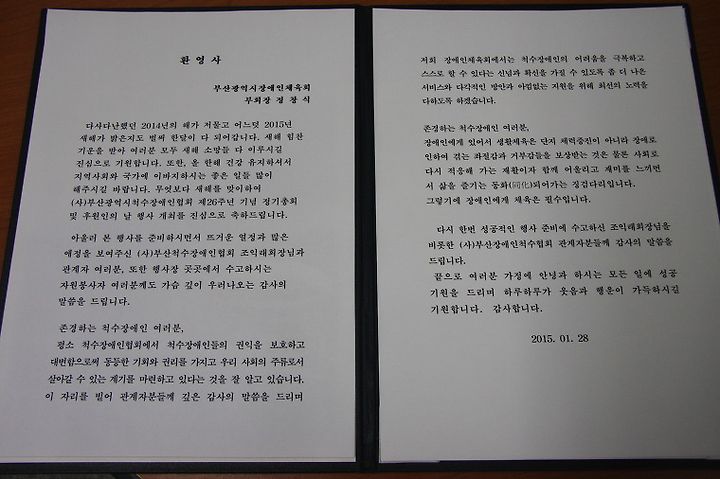 환 영 사
부산광역시장애인체육회
부회장 정 창 식
다사다난했던 2014년의 해가 저물고 어느덧 2015년
새해가 밝은지도 벌써 한달이 다 되어갑니다. 새해 힘찬
기운을 받아 여러분 모두 새해 소망들 다 이루시길
진심으로 기원합니다. 또한, 올 한해 건강 유지하셔서
지역사회와 국가에 이바지하시는 좋은 일들 많이
해주시길 바랍니다. 무엇보다 새해를 맞이하여
(사)부산광역시척수장애인협회 제26주년 기념 정기총회
및 후원인의 날 행사 개최를 진심으로 축하드립니다.
아울러 본 행사를 준비하시면서 뜨거운 열정과 많은
애정을 보여주신 (사)부산척수장애인협회 조익래회장님과
관계자 여러분, 또한 행사장 곳곳에서 수고하시는
자원봉사자 여러분께도 가슴 깊이 우러나오는 감사의
말씀을 드립니다.
존경하는 척수장애인 여러분,
평소 척수장애인협회에서 척수장애인들의 권익을 보호하고
대변함으로써 동등한 기회와 권리를 가지고 우리 사회의 주류로서
살아갈 수 있는 계기를 마련하고 있다는 것을 잘 알고 있습니다.
이 자리를 빌어 관계자분들께 깊은 감사의 말씀을 드리며
저희 장애인체육회에서는 척수장애인의 어려움을 극복하고
스스로 할 수 있다는 신념과 확신을 가질 수 있도록 좀 더 나은
서비스와 다각적인 방안과 아낌없는 지원을 위해 최선의 노력을
다하도록 하겠습니다.
존경하는 척수장애인 여러분,
장애인에게 있어서 생활체육은 단지 체력증진이 아니라 장애로
인하여 겪는 좌절감과 거부감들을 보상받는 것은 물론 사회로
다시 적응해 가는 재활이자 함께 어울리고 재미를 느끼면
서 삶을 즐기는 동화(同化)되어가는 징검다리입니다.
그렇기에 장애인에게 체육은 필수입니다.
다시 한번 성공적인 행사 준비에 수고하신 조익래회장님을
비롯한 (사)부산장애인척수협회 관계자분들께 감사의 말씀을
드립니다.
끝으로 여러분 가정에 안녕과 하시는 모든 일에 성공
기원을 드리며 하루하루가 웃음과 행운이 가득하시길
기원합니다. 감사합니다.
2015. 01. 28